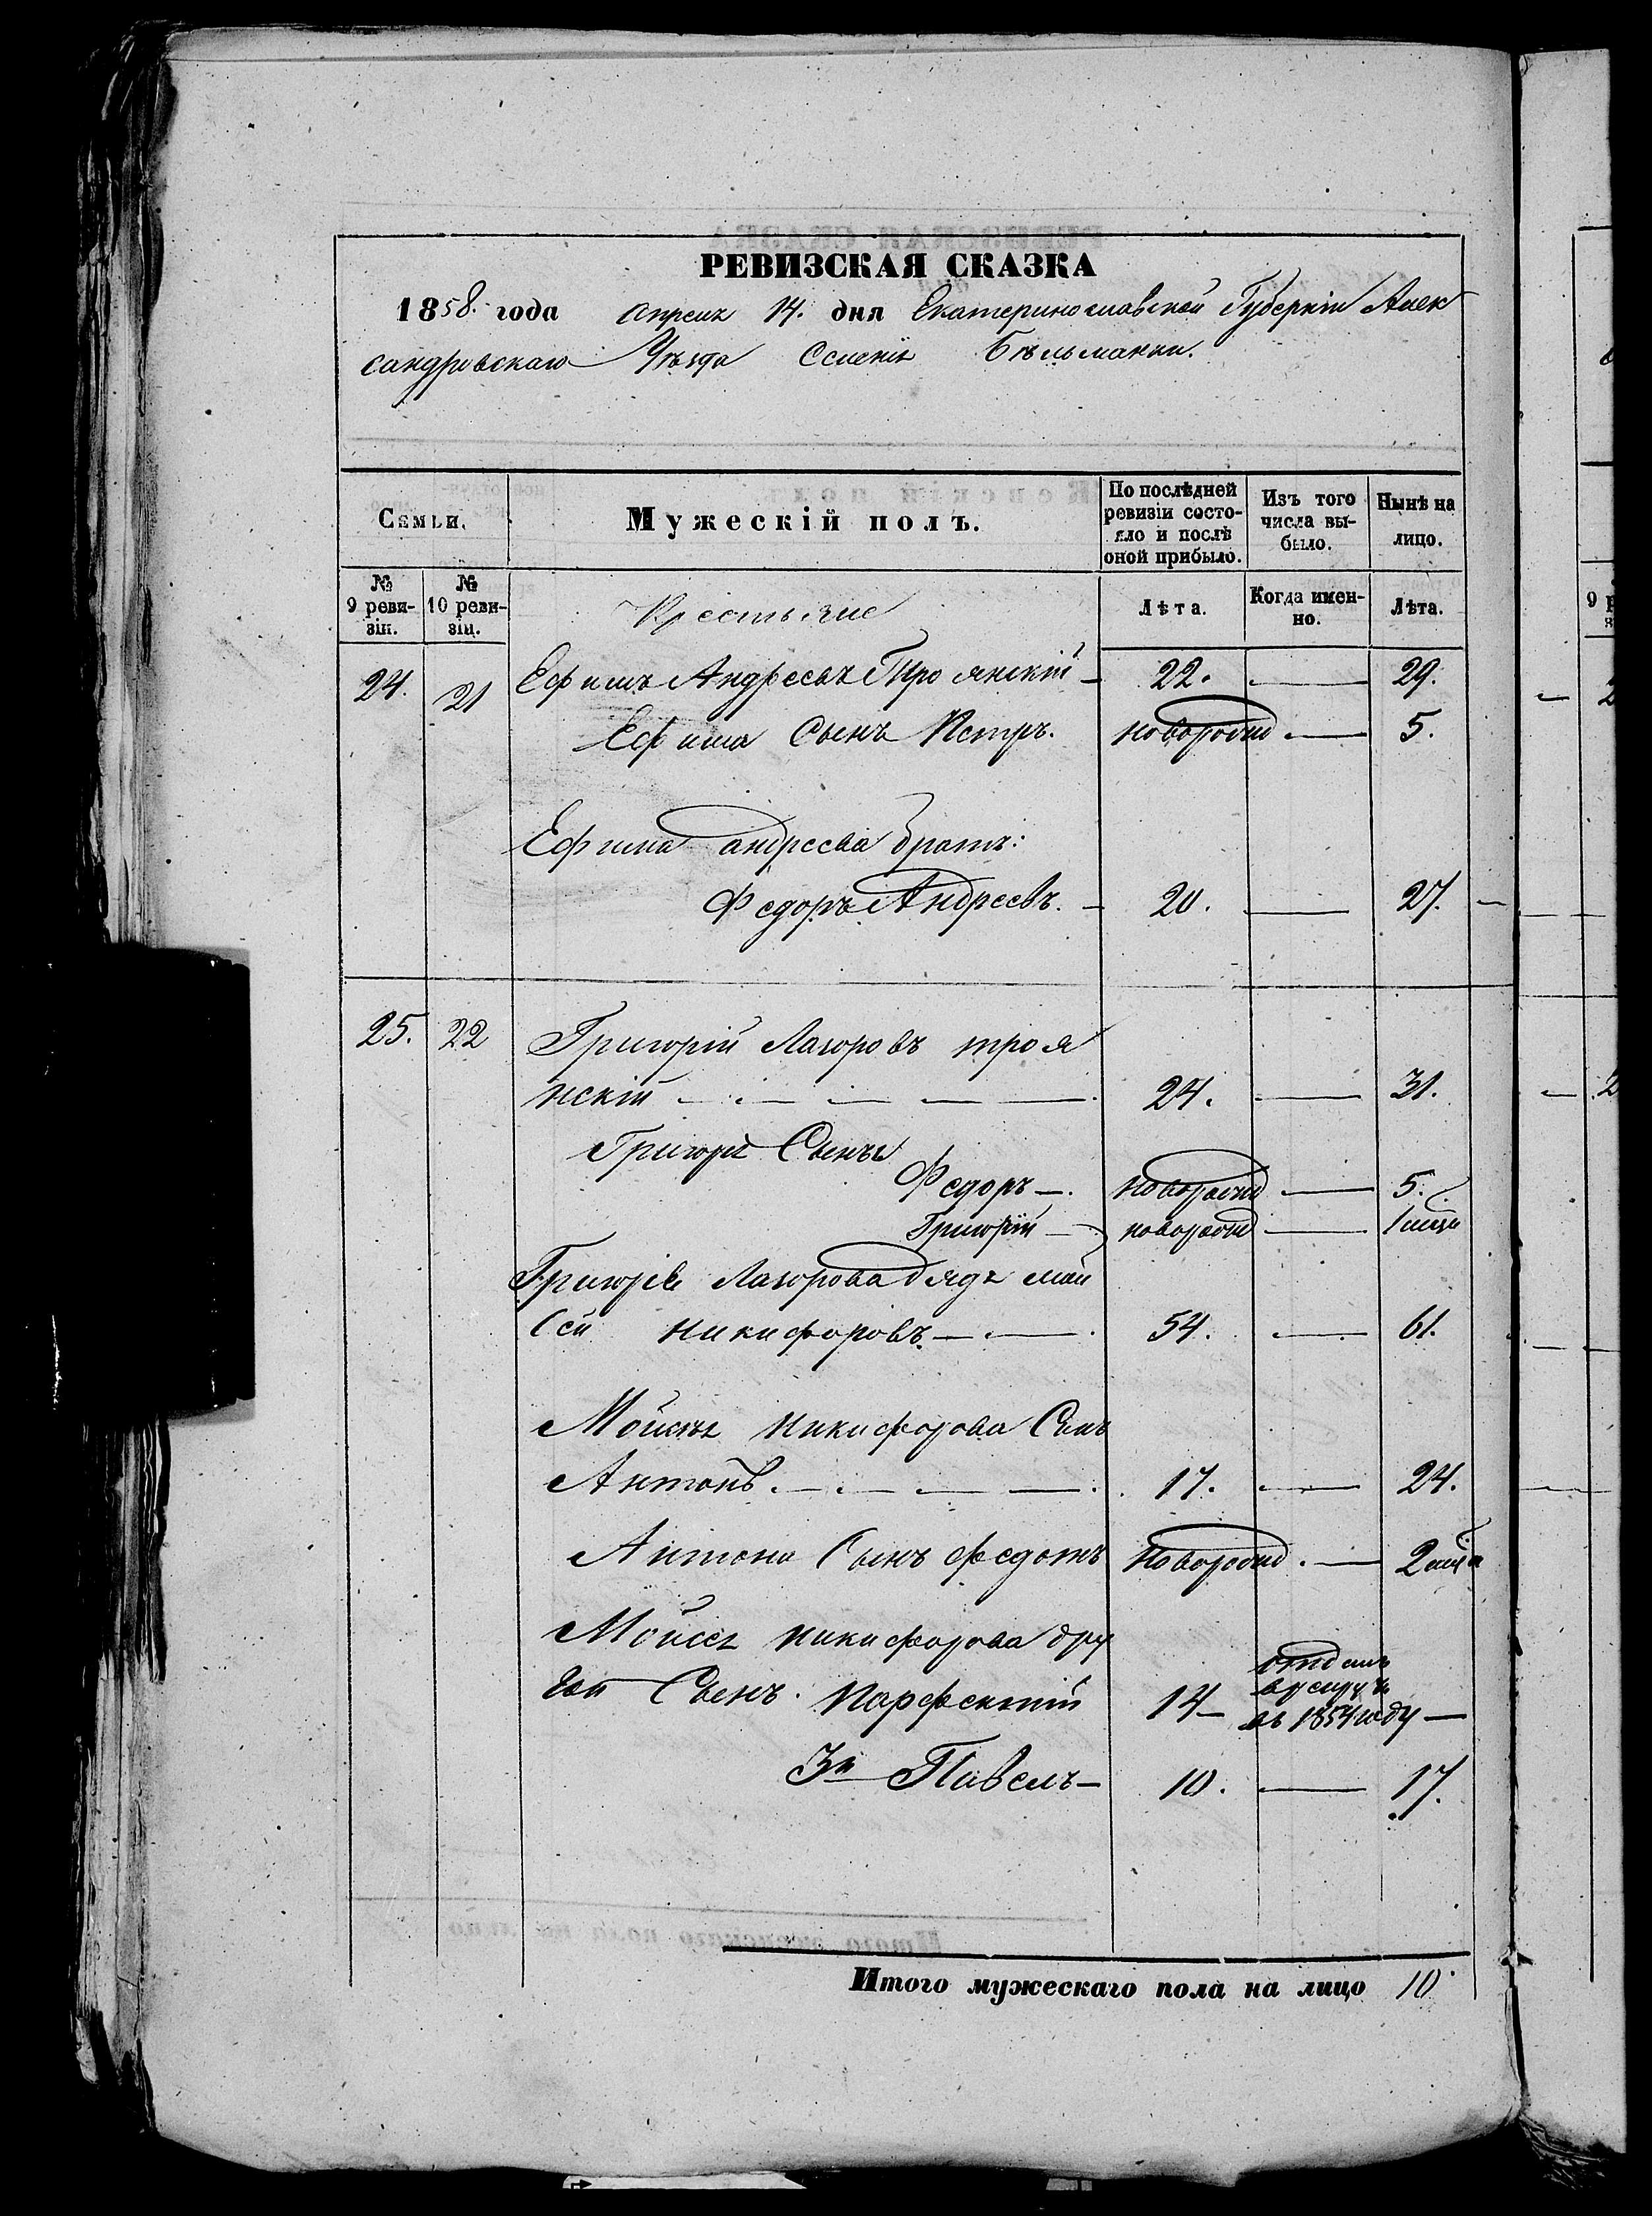 РЕВИЗСКАЯ СКАЗКА
1858. года апреля 14. дня Екатеринославской Губерніи Алек
сандровскаго Уѣзда Селенія Бѣльманки.
Семьи.
Мужескій полъ.
По послѣдней ревизіи состо-
яло и послѣ
оной прибыло.
Изъ того
числа вы-
было.
Нынѣ на
лицо.
№
9 реви-
зіи.
№
10 реви-
зіи.
Крестьяне
Лѣта.
Когда имен-
но.
Лѣта.
24. 21 Ефимъ Андреевъ Троянскій 22. 29.
Ефима Сынъ Петръ. новорожд 5.
Ефима андреева братъ:
Федоръ Андреевъ. 20. 27.
25. 22 Григорій Лазоровъ троя
нскій 24. 31.
Григорія Сыны
Федоръ новорожд 5.
Григорій новорожд 1 мца
Григорія Лазорова дядя мой
Сей никифоровъ 54. 61.
Мойсея никифорова Сынъ
Антонъ. 17. 24.
Антона Сынъ федотъ новорожд. 2 мца
Мойсея никифорова дру
гой Сынъ. парфентій 14 отданъ
в рекрут
въ 1854 году
3й Павелъ 10. 17.
Итого мужескаго пола на лицо 10